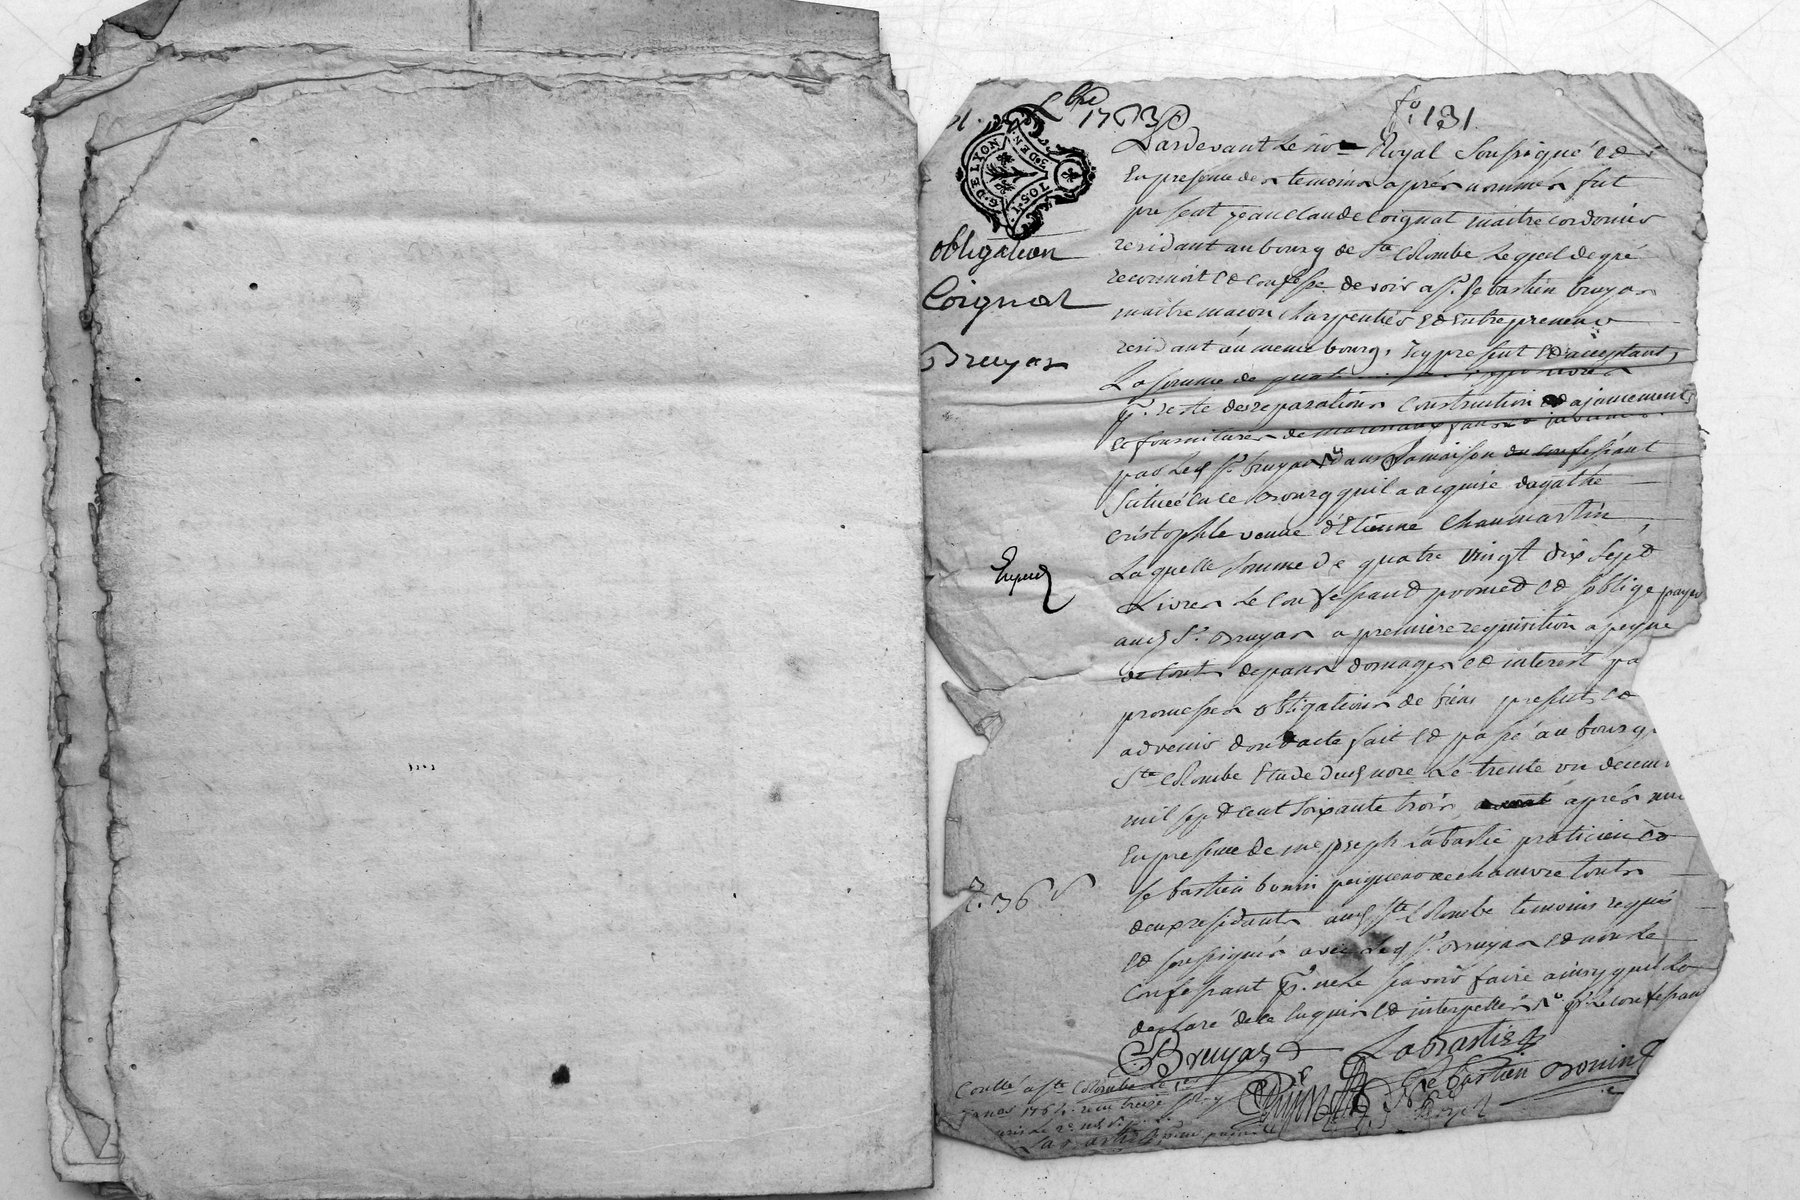 31. Xbre 1763
fo. 131
G. DE LYON
3. DEN.
TOS. M.
obligation
Coignat
Bruyas
Expedi
Pardevant le nore Royal soussigné et
En presence des temoins aprés nommés fut
present jean claude Coignat maitre cordonnier
residant au bourg de Ste Colombe lequel de gré
reconnoit et confesse devoir a sr. sebastien bruyas
maitre macon charpentier et Entrepreneur
residant au meme bourg, Icy present et acceptant,
La somme de quatre
pr. reste de reparations construction et ajancements
et fournitures de materiaux
par led sr. bruyas dans sa maison du confessant
scituée en ce bourg quil a acquise dagathe
cristophle veuve d'Etienne Chaumartin
Laquelle somme de quatre vingt dix sept
Livres le confessant promet et soblige payer
aud sr. Bruyas a premiere requisition a peyne
de touts depans domages et interest pa
promesses obligations de biens presents et
advenir dont acte fait et passé au bourg
Ste Colombe Etude dud nore le trente un decem
mil sept cent soixante trois, après mi
En presence de me joseph Labastie praticien et
sebastien bonin peigneur de chanvre touts
deux residants aud Ste Colombe temoins requis
et soussignés avec led sr. Bruyas et non le
confessant pr. ne le scavoir faire ainsy quil la
declaré de ce enquis et interpellés
R. 36 s
Bruyas
Labastie
Sebastien Bonin
Conllé a Ste Colombe le
janer 1764. reçu treize sols